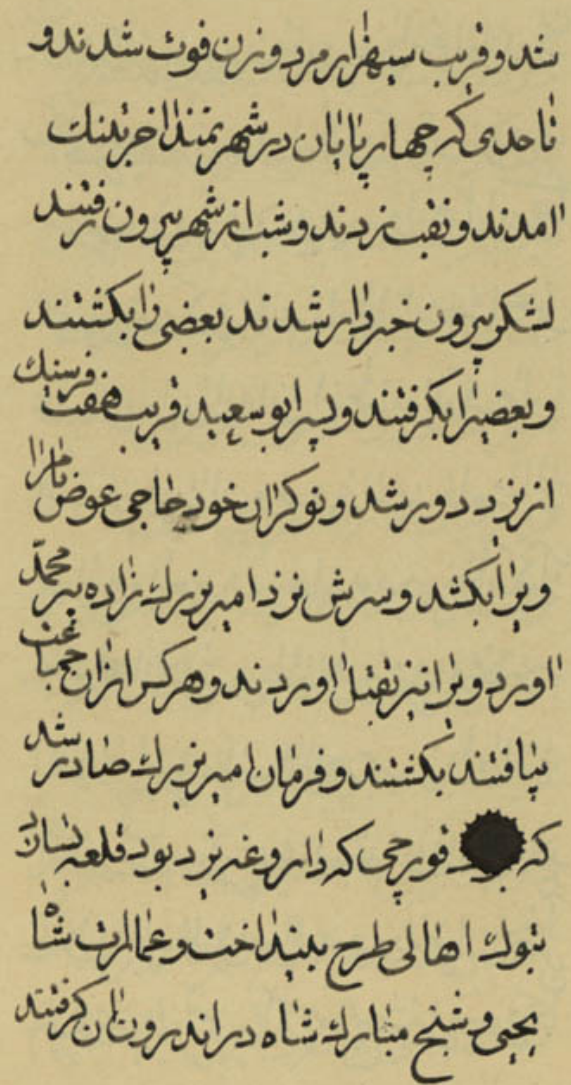 شد و قریب سیهزار مرد و زن فوت شدند و
تا حدی که چهارپایان در شهر نمند اخر بتنك
امدند و نقب زدند و شب از شهر بیرون رفتند
لشکر بیرون خبردار شدند بعضی را بکشتند
و بعضیرا بکرفتند و پسر ابو سعید قریب هفت فرسنك
از یزد دور شد و نوکران خود حاجی عوض نامرا
ویرا بکشد و سرش نزد امیر بزرك زاده پیر محمد
اورد ویرا نیز بقتل اوردند و هر کس از ان جماعت
بیافتند بکشتند و فرمان امیر بزرك صادر شد
که قورچی که داروغه یزد بود قلعه بسازد
بتوك اهالی طرح بینداخت و عمارت شاه
یحیی و شیخ مبارك شاه در اندرون ان کرفتند